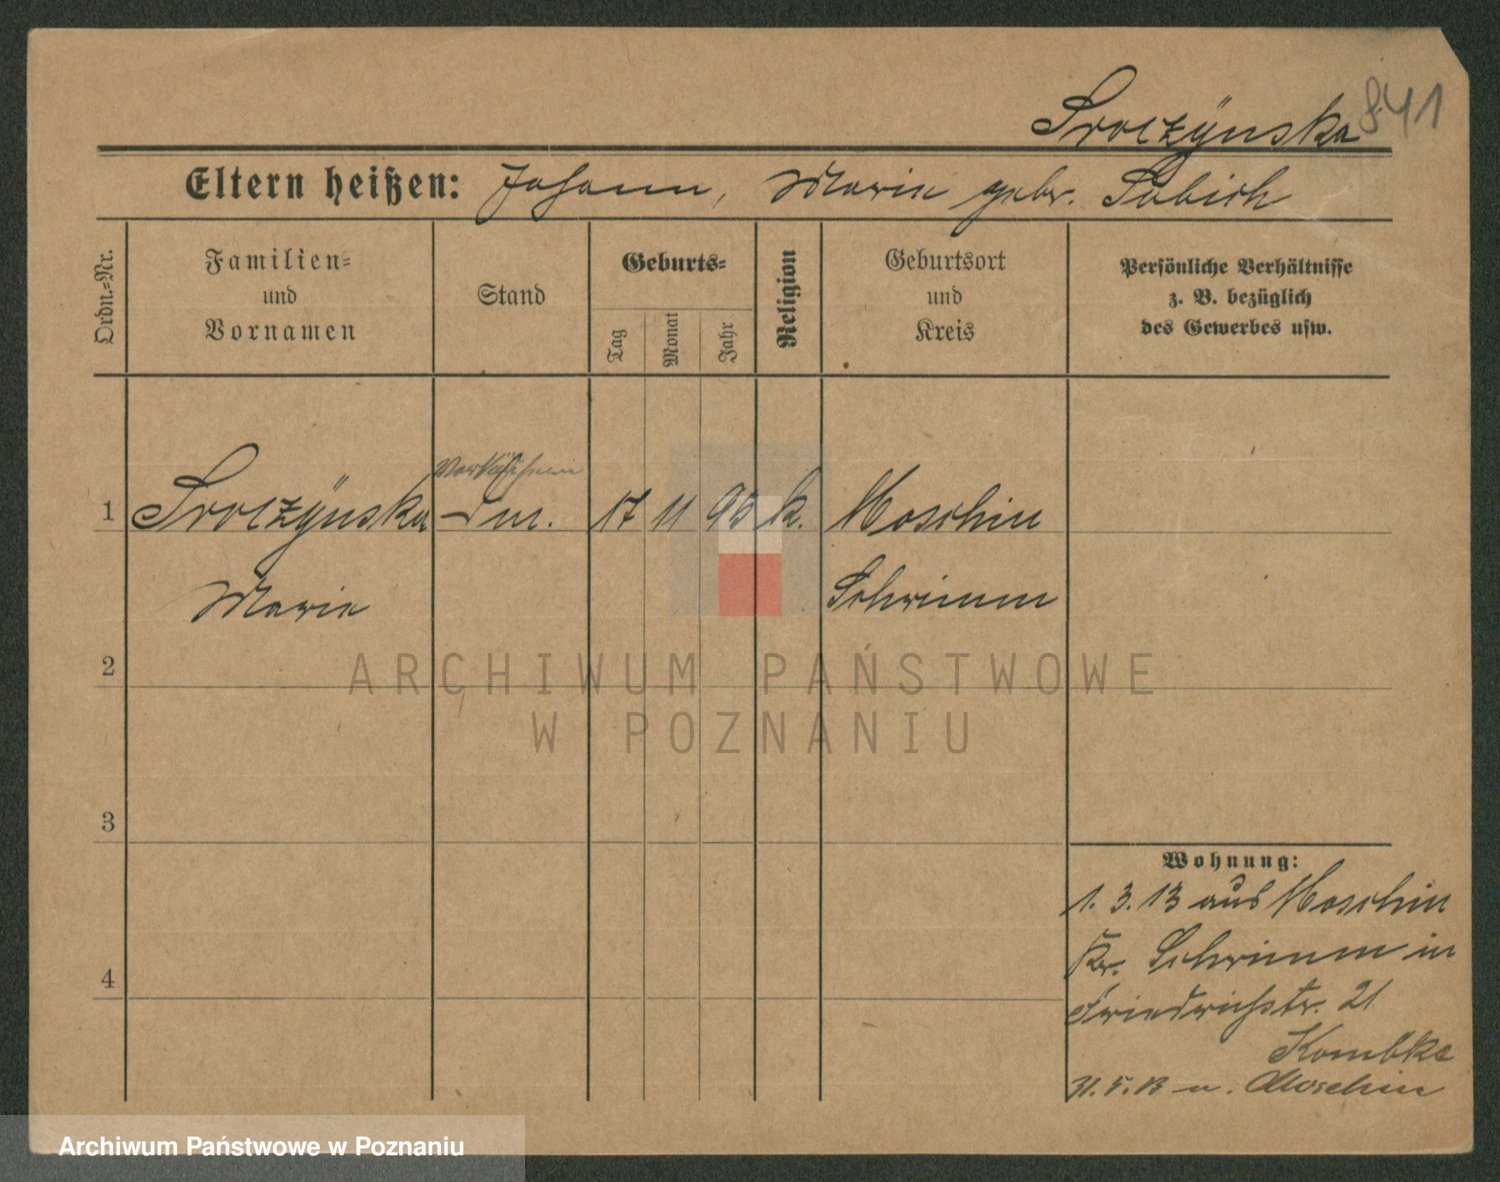 Sroczÿnska 841
Eltern heißen: Johann, Marie gebr. Sobich
Ordn.-Nr.
Familien-
und
Vornamen
Stand
Geburts-
Tag
Monat
Jahr
Religion
Geburtsort
und
Kreis
Persönliche Verhältnisse
z. B. bezüglich
des Gewerbes usw.
Verkäuferin
1 Sroczÿnska 17 11 93 k. Moschin
Marie Schrimm
2
3
4
Wohnung:
1. 3. 13 aus Moschin
Kr. Schrimm in
Friedrichstr. 21
31. 5. 13 n. Moschin
ARCHIWUM PAŃSTWOWE
W POZNANIU
Archiwum Państwowe w Poznaniu